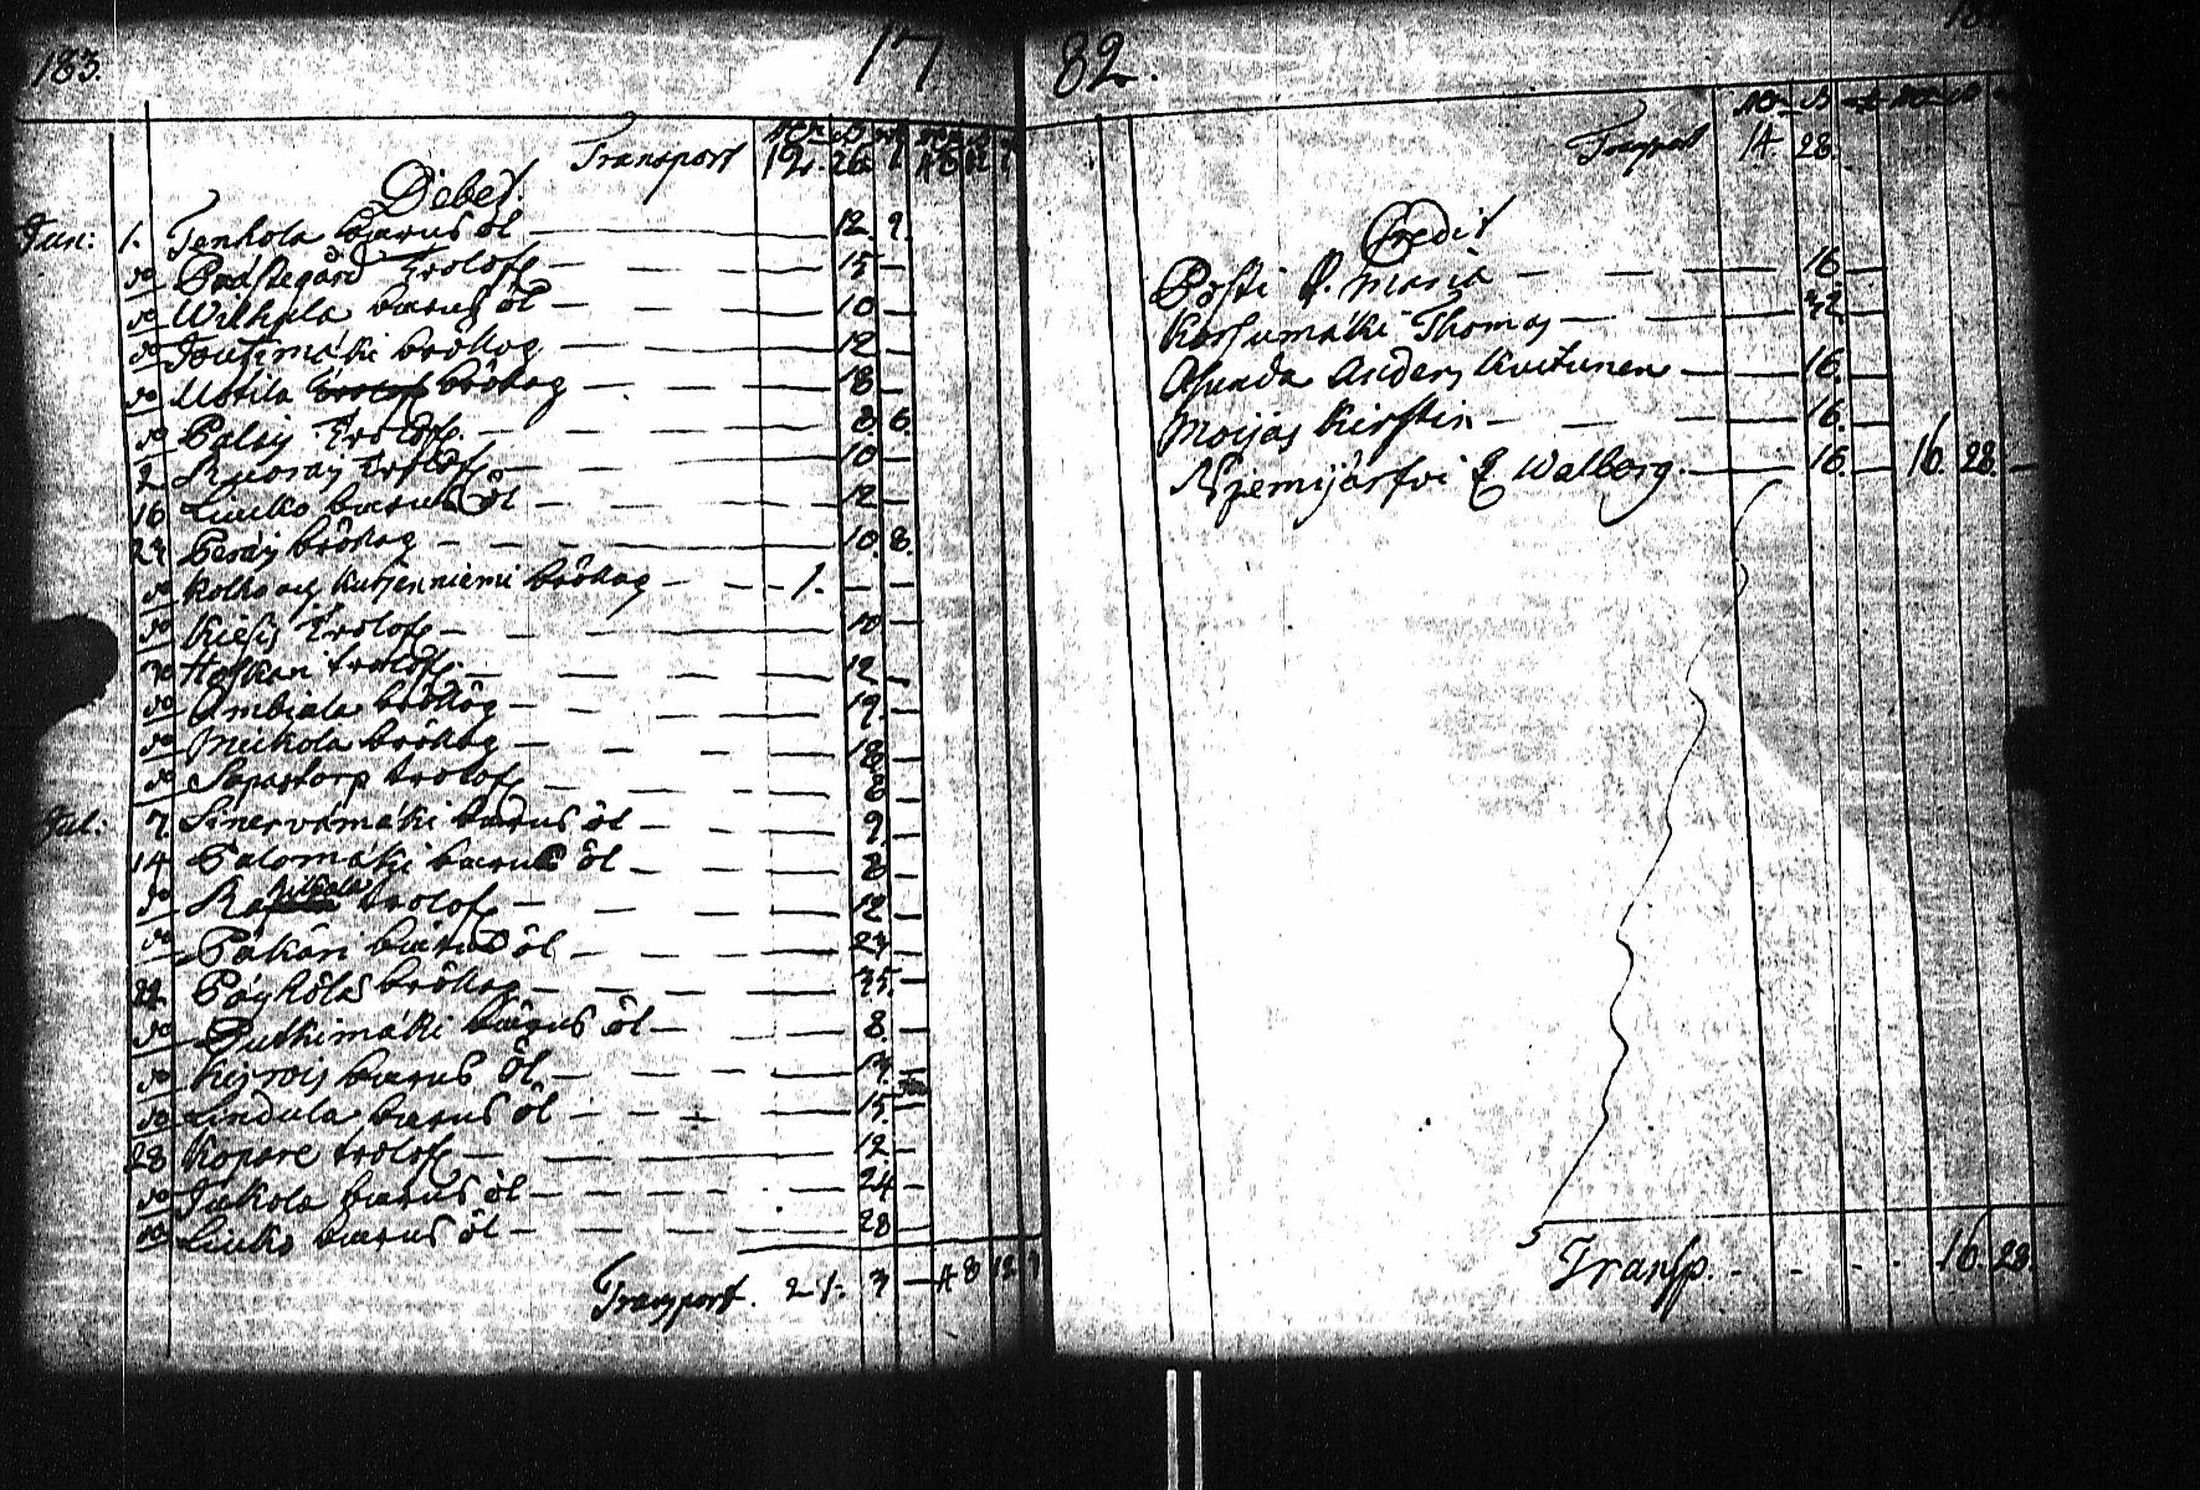 183. 17
Transport 12. 26. 1 48 12 1
Debet.
Jun: 1. Tenkola barns öl — 12. 2.
do Prästegård trolofg — 15 —
do Wilhula barns öl — 10 —
do Toutimäki brökog — 12 —
do Mörila brökog — 18 —
do Palsij trolofg. — 8. 6.
2 Ruosaij trolofg — 10 —
16 Liuko barns öl — 12 —
24 Peräij brökog — 10. 8.
do Kolho och Kurjenniemi brökog — 1. — —
do Kiesis trolofg — 10 —
do Haskari trolofg. — 12 —
do Ambiala brökog — 19. —
do Meikola brökog — 18 —
do Sepastorp trolofg — 8 —
Jul: 7. Sinervämäki barns öl — 9. —
14 Palomäki barns öl — 8 —
do trolofg — 12 —
do Päkäri barns öl — 24 —
22. Päyhölä brökog — 25. —
do Putkimäki barns öl — 8. —
do barns öl — 14. —
do Lindula barns öl — 15. —
28 Kopare trolofg — 12 —
do Jukola barns öl — 24 —
do Liuko barns öl — 28 —
Transport. 21. 3 — 48 12 1
82.
Transport 14. 28.
Credit
Pösti Maria — 16. —
Kassumäki Thomas — 32 —
Asunda Anders Kuitunen — 16. —
Moijas Kirstin — 16. —
Niemijärfvi Walborg. — 16. — 16. 28. —
Transp. - - - - 16. 28.